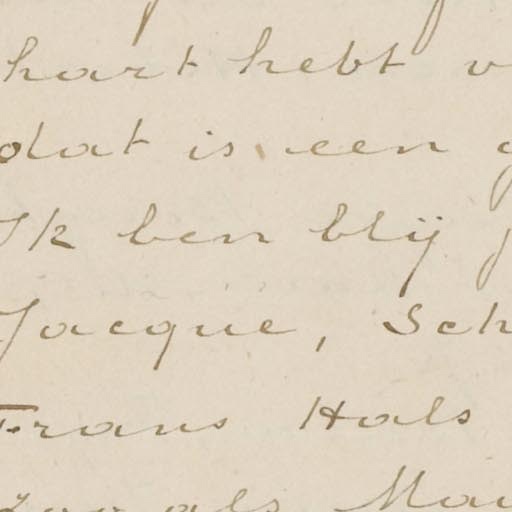 hart hebt v
dat is een g
Ik ben blij
Jacque, Sch
Frans Hals
zoo als Mau